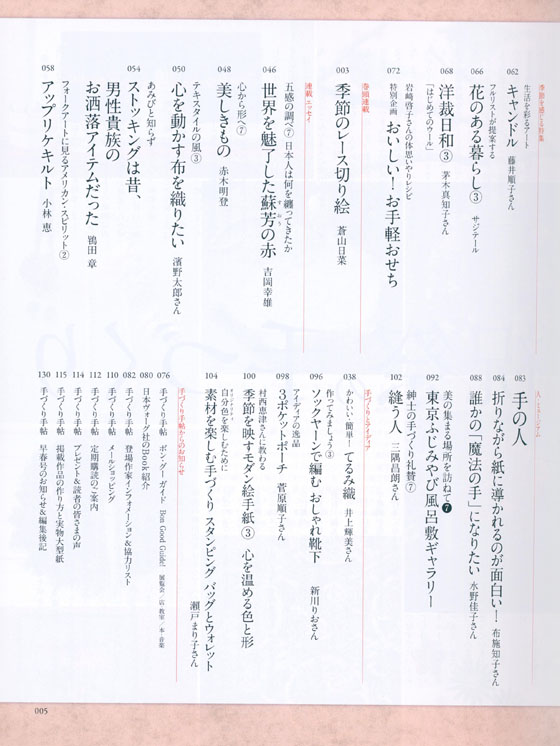 季節を感じる特集
生活を彩るアート
062 キャンドル 藤井順子さん
フルリストが提案する
066 花のある暮らし③ サジテール
068 洋裁日和③ 茅木真知子さん
「はじめてのウール」
岩﨑啓子さんの体思いやりレシピ
072 特別企画 おいしい！お手軽おせち
巻頭連載
003 季節のレース切り絵 蒼山日菜
連載 エッセイ
五感の調べ⑦ 日本人は何を纏ってきたか
046 世界を魅了した蘇芳の赤 吉岡幸雄
すおう
心から形へ⑦
048 美しきもの 赤木明登
テキスタイルの風③
050 心を動かす布を織りたい 濱野太郎さん
あみびと知らず
054 ストッキングは昔、
男性貴族の
お洒落アイテムだった 鴨田 章
フォークアートに見るアメリカン・スピリット②
058 アップリケキルト 小林 恵
083 手の人
084 折りながら紙に導かれるのが面白い！ 布施知子さん
088 誰かの「魔法の手」になりたい 水野佳子さん
美の集まる場所を訪ねて❼
092 東京ふじみやび風呂敷ギャラリー
紳士の手づくり礼賛⑦
102 縫う人 三隅昌朗さん
手づくりとアイデア
038 かわいい、簡単！ てるみ織 井上輝美さん
作ってみましょう③
096 ソックヤーンで編む おしゃれ靴下 新川りおさん
アイディアの逸品
098 3ポケットポーチ 菅原順子さん
村西恵津さんに教わる
100 季節を映すモダン絵手紙③ 心を温める色と形
自分色を楽しむために
104 素材を楽しむ手づくり スタンピング バッグとウォレット
瀬戸まり子さん
手づくり手帖からのお知らせ
076 手づくり手帖 ボングー！ガイド Bon Good Guide! 展覧会/店・教室/本・音楽
080 日本ヴォーグ社のBook紹介
082 手づくり手帖 登場作家インフォメーション＆協力リスト
110 手づくり手帖 メールショッピング
112 手づくり手帖 定期購読のご案内
114 手づくり手帖 プレゼント＆読者の皆さまの声
115 手づくり手帖 掲載作品の作り方と実物大型紙
130 手づくり手帖 早春号のお知らせ＆編集後記
005